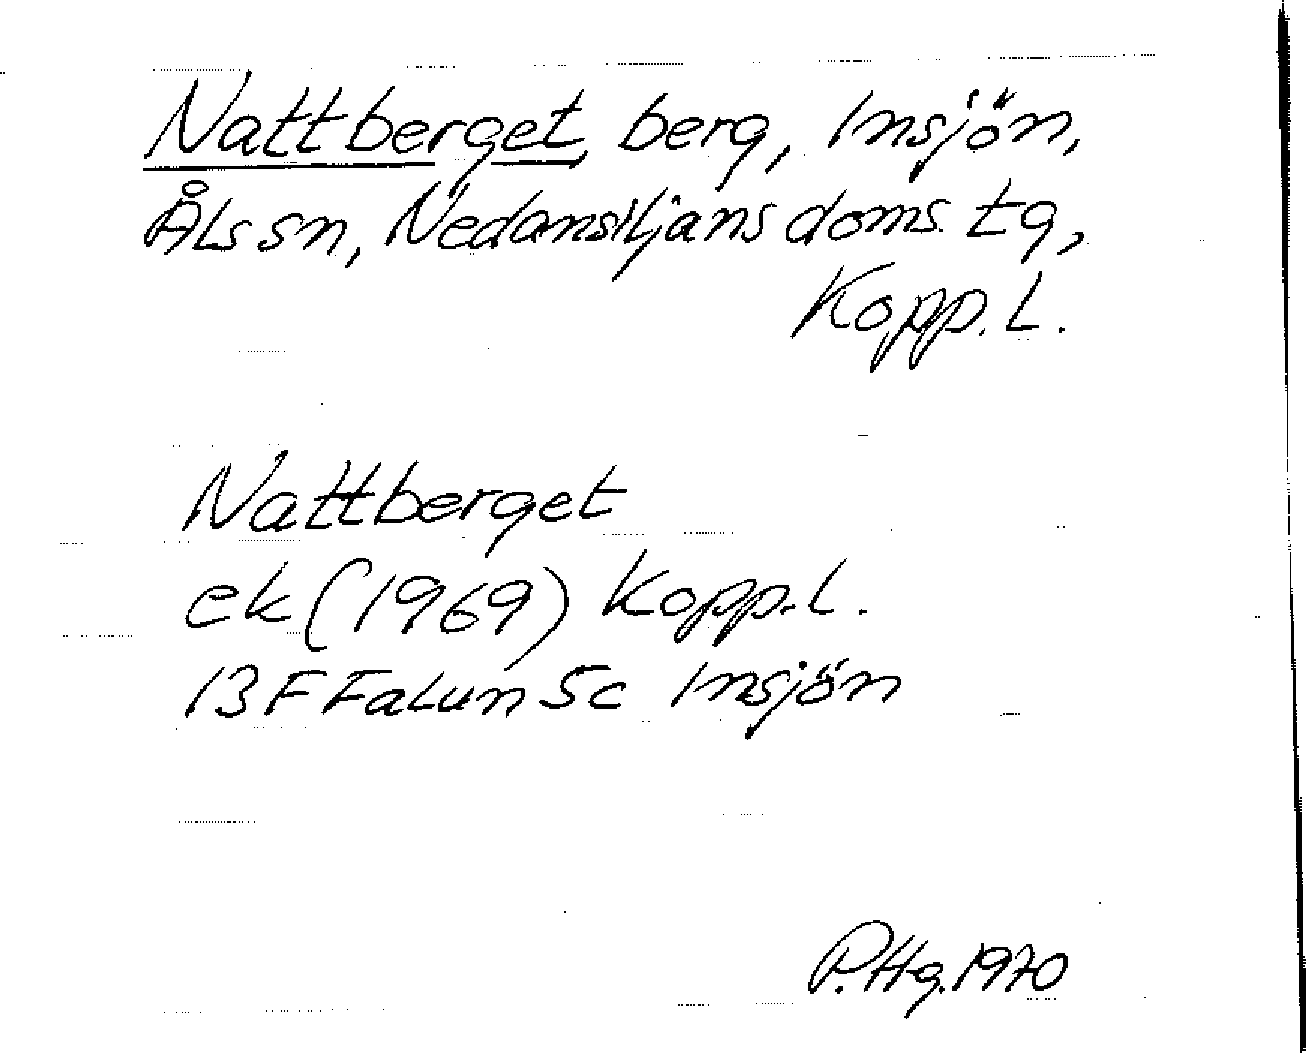 Nattberget, berg, Insjön,
Åls sn, Nedansiljans doms. tg,
Kopp. l.
Nattberget
ek (1969) Kopp. l.
13 F Falun 5c Insjön
P. Hg. 1970